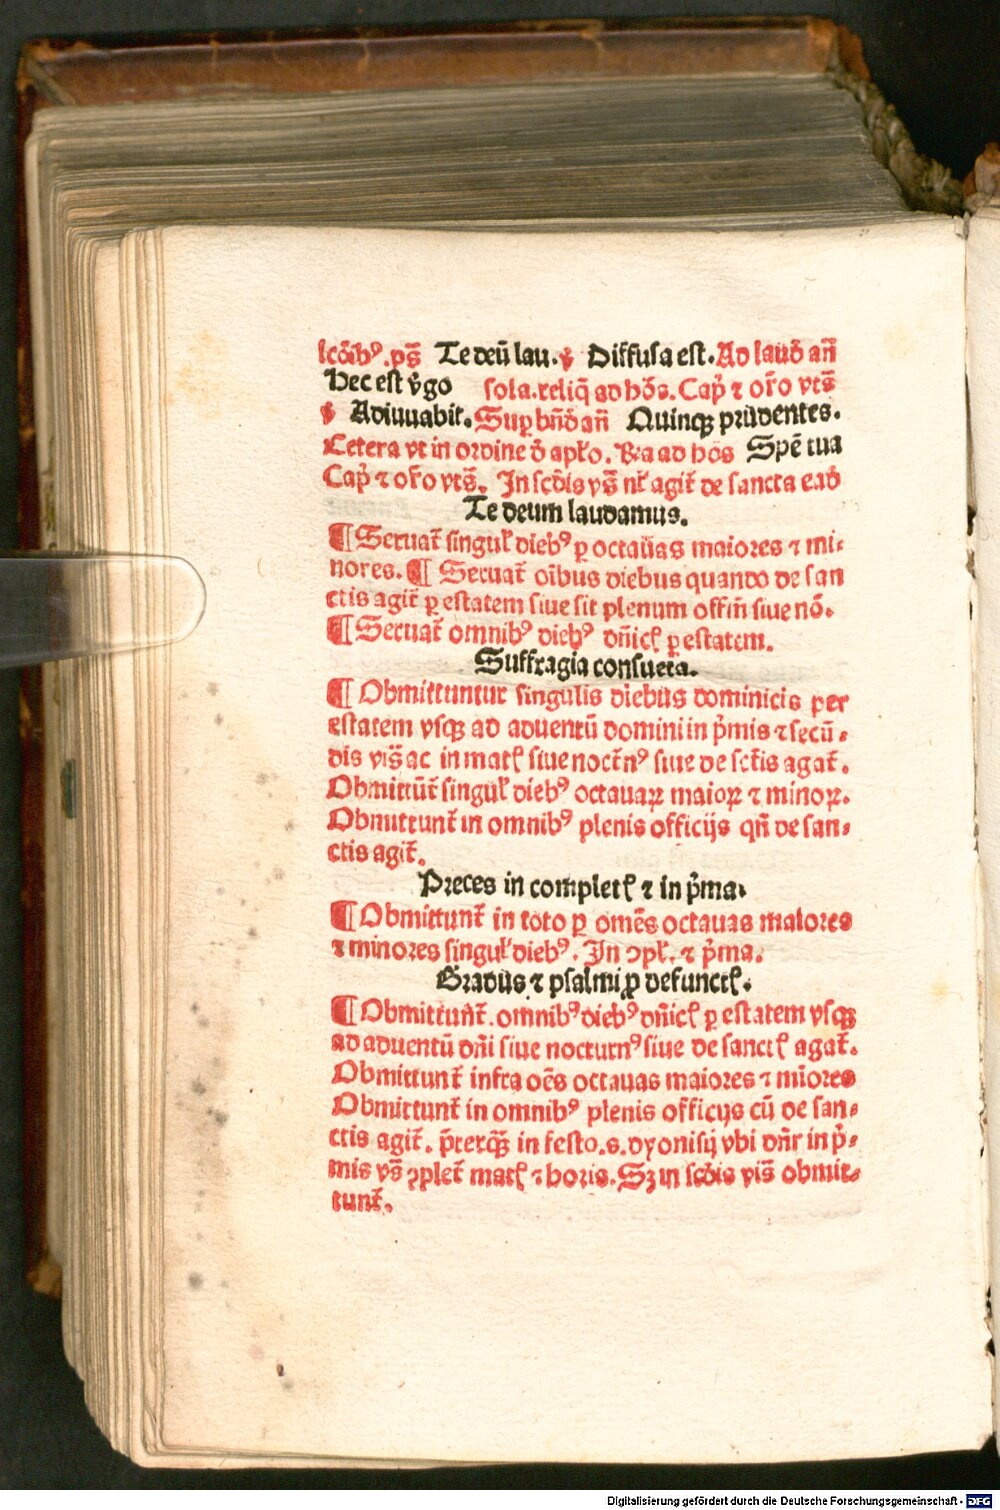 scd̄ibꝰ.ps̄ Te deū lau.℣ Diffusa est.Ad laud̄ an̄
Hec est v̾go sola.reliq̄ ad hōs. Cap̾ ⁊ or̄o vts̄
℣ Adiuuabit.Sup bn̄d̄ an̄ Quinqꝫ prudentes.
Cetera vt in ordine d̄ apl̄o. ad hōs Spē tua
Cap̾ ⁊ or̄o vts̄. In scd̄is vs̄ nr̄ agit̄ de sancta ead̄
Te deum laudamus.
¶ Seruat̄ singul̄ diebꝰ ꝑ octauas maiores ⁊ mi⸗
nores.¶ Seruat̄ oībus diebus quando de san
ctis agit̄ ꝑ estatem siue sit plenum offīn siue nō.
¶ Seruat̄ omnibꝰ diebꝰ dn̄icꝭ ꝑ estatem.
Suffragia consueta.
¶ Obmittuntur singulis diebus dominicis per
estatem vsqꝫ ad aduentū domini in p̾mis ⁊ secū⸗
dis vis̄ ac in matꝭ siue noctn̄ꝰ siue de sct̄is agat̄.
Obmittūt̄ singul̄ diebꝰ octauaꝝ maioꝝ ⁊ minoꝝ.
Obmittunt̄ in omnibꝰ plenis officijs qn̄ de san⸗
ctis agit̄.
Preces in completꝭ ⁊ in p̾ma.
¶ Obmittunt̄ in toto ꝑ omēs octauas maiores
⁊ minores singul̄ diebꝰ. In ꝯpl̄. ⁊ p̾ma.
Gradus ⁊ psalmi ꝓ defunctꝭ.
¶ Obmittunt̄. omnibꝰ diebꝰ dn̄icꝭ ꝑ estatem vsqꝫ
ad aduentū dn̄i siue nocturnꝰ siue de sanctꝭ agat̄.
Obmittunt̄ infra oēs octauas maiores ⁊ mīores
Obmittunt̄ in omnibꝰ plenis officijs cū de san⸗
ctis agit̄. p̄terqꝫ̄ in festo.s.dyonisij vbi dn̄r in p̾⸗
mis vs̄ ꝯplet̄ matꝭ ⁊ horis.Sꝫ in scd̄is vis̄ obmit⸗
tunt̄.
Digitalisierung gefördert durch die Deutsche Forschungsgemeinschaft - DFG